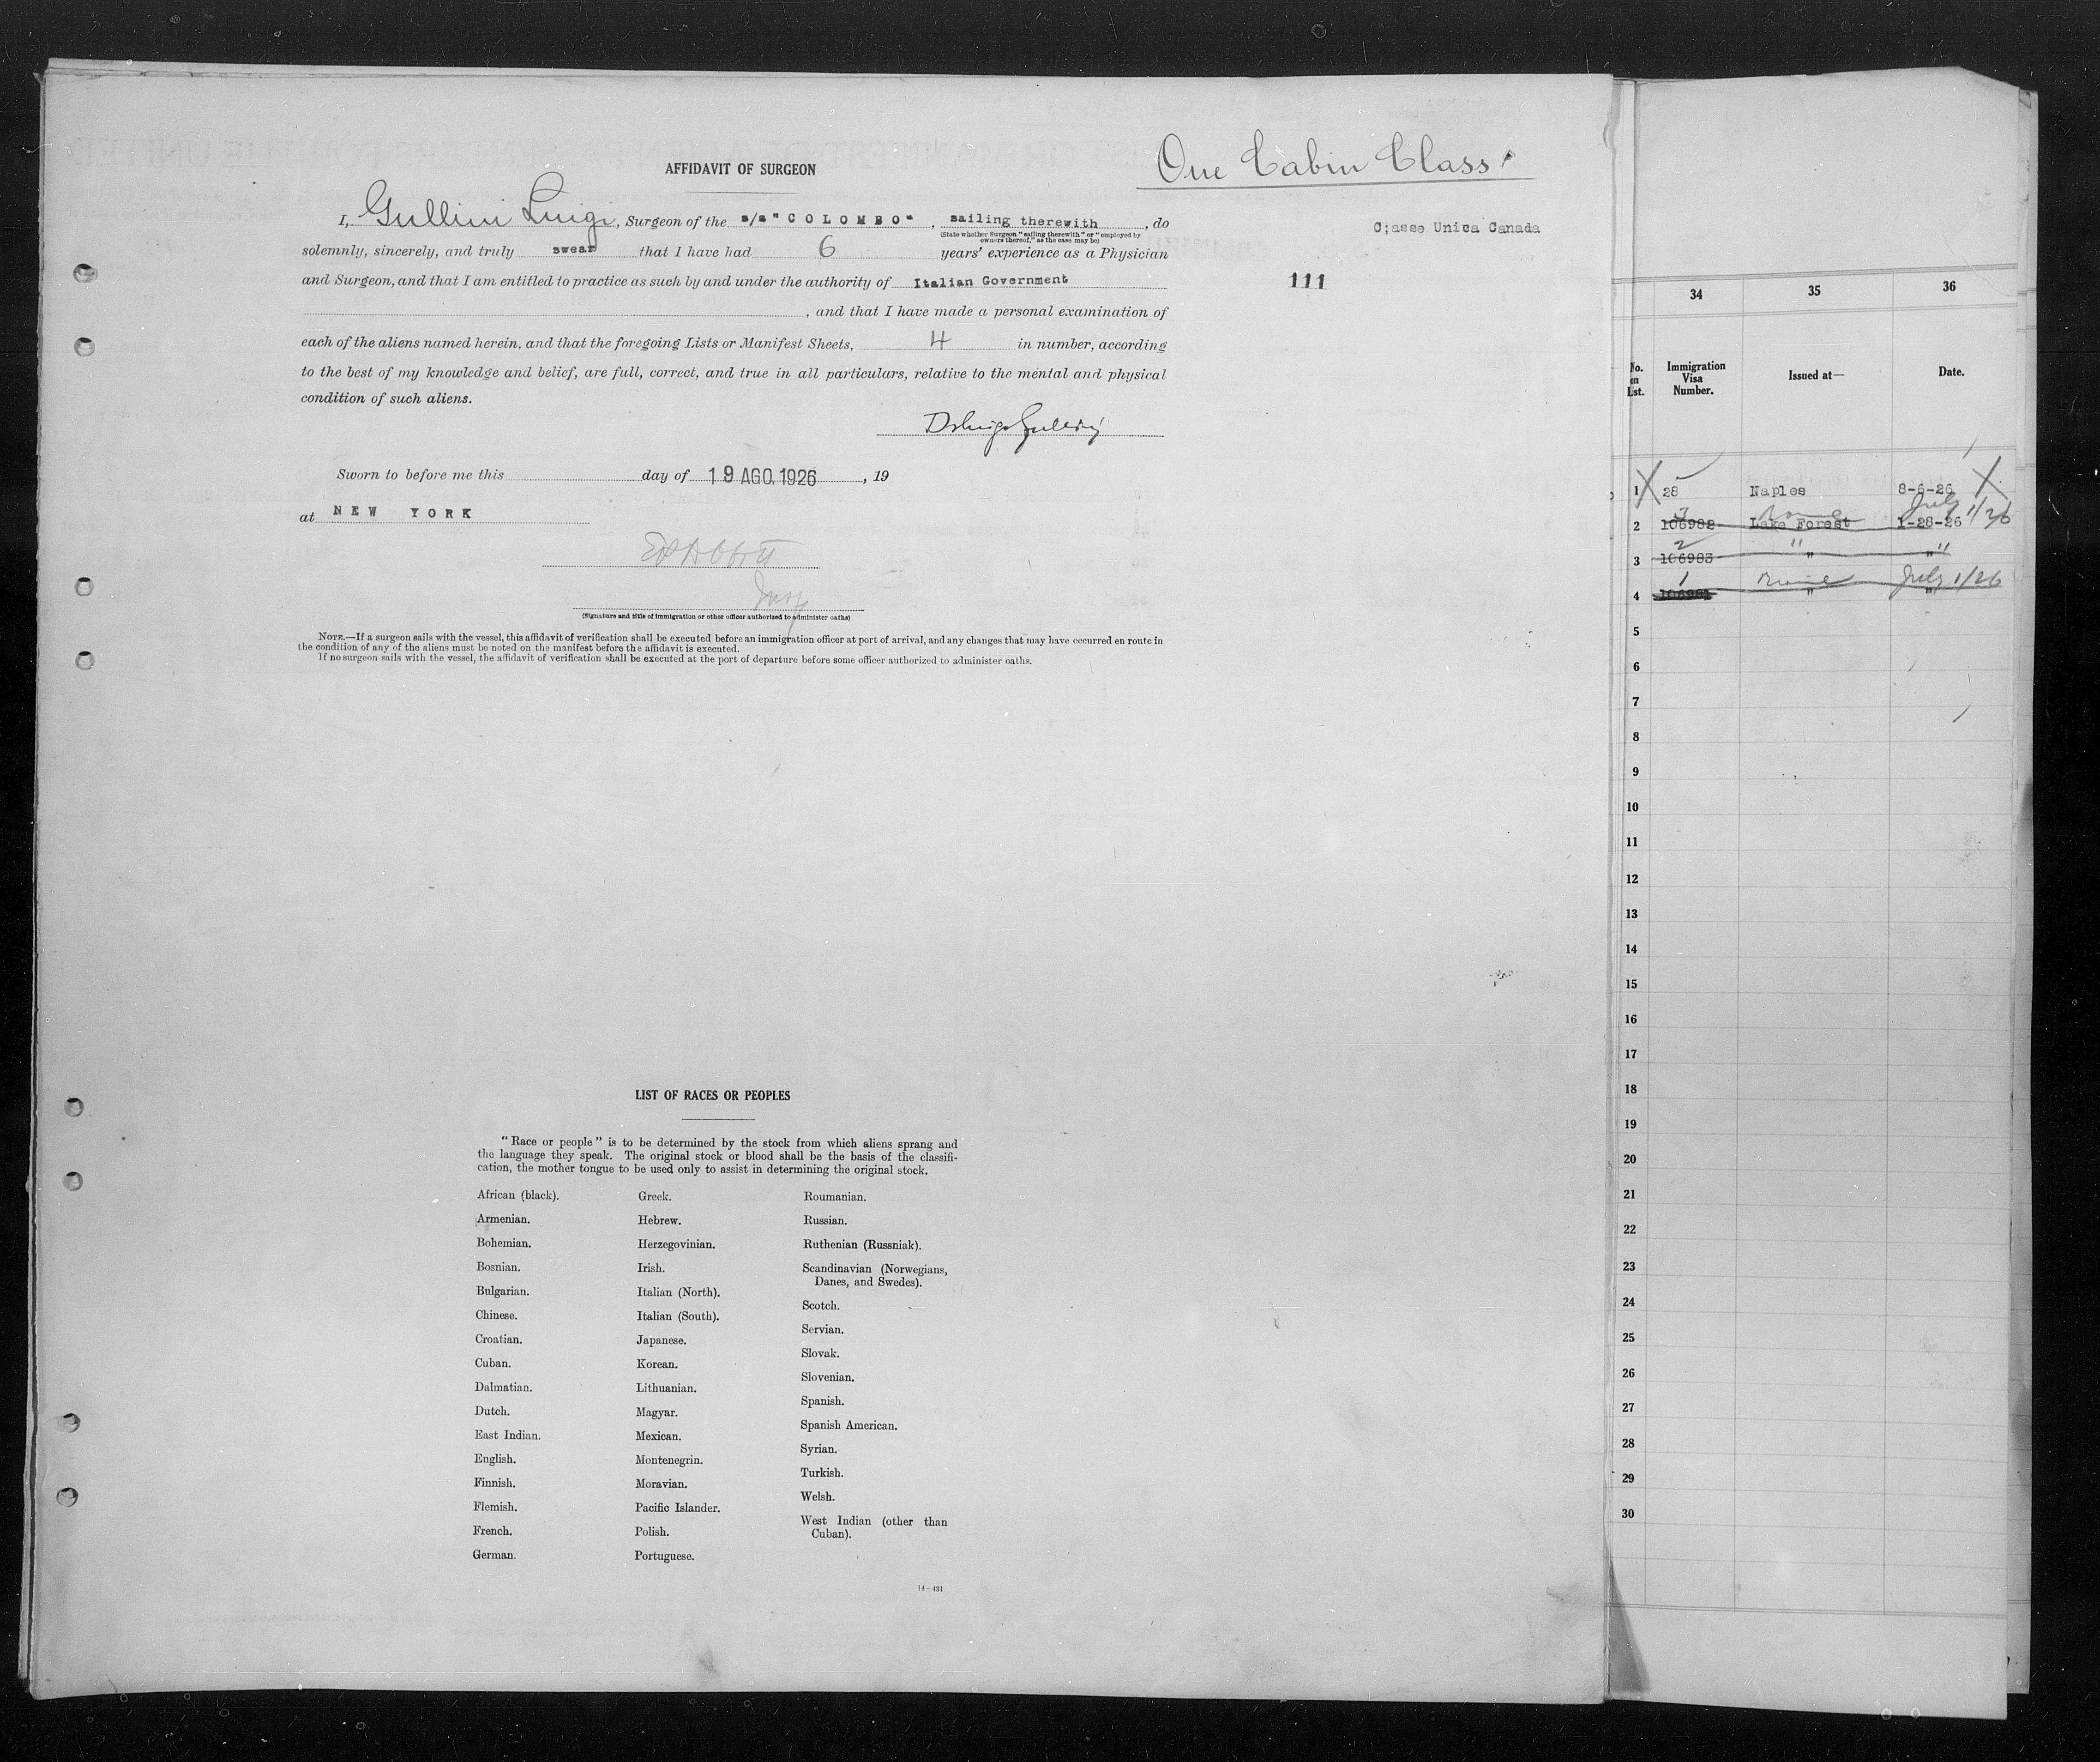 AFFIDAVIT OF SURGEON
One Cabin Class
I, Gullini Luigi, Surgeon of the s/s "COLOMBO", sailing therewith, do
(State whether Surgeon "sailing therewith" or "employed by
owners thereof," as the case may be)
C;asse Unica Canada
solemnly, sincerely, and truly swear that I have had 6 years' experience as a Physician
and Surgeon, and that I am entitled to practice as such by and under the authority of Italian Government
111
, and that I have made a personal examination of
each of the aliens named herein, and that the foregoing Lists or Manifest Sheets, 4 in number, according
to the best of my knowledge and belief, are full, correct, and true in all particulars, relative to the mental and physical
condition of such aliens.
Sworn to before me this day of 19 AGO. 1926, 19
at NEW YORK
Insp
(Signature and title of immigration or other officer authorized to administer oaths)
NOTE.—If a surgeon sails with the vessel, this affidavit of verification shall be executed before an immigration officer at port of arrival, and any changes that may have occurred en route in
the condition of any of the aliens must be noted on the manifest before the affidavit is executed.
If no surgeon sails with the vessel, the affidavit of verification shall be executed at the port of departure before some officer authorized to administer oaths.
LIST OF RACES OR PEOPLES
"Race or people" is to be determined by the stock from which aliens sprang and
the language they speak. The original stock or blood shall be the basis of the classifi-
cation, the mother tongue to be used only to assist in determining the original stock.
African (black).
Armenian.
Bohemian.
Bosnian.
Bulgarian.
Chinese.
Croatian.
Cuban.
Dalmatian.
Dutch.
East Indian.
English.
Finnish.
Flemish.
French.
German.
Greek.
Hebrew.
Herzegovinian.
Irish.
Italian (North).
Italian (South).
Japanese.
Korean.
Lithuanian.
Magyar.
Mexican.
Montenegrin.
Moravian.
Pacific Islander.
Polish.
Portuguese.
Roumanian.
Russian.
Ruthenian (Russniak).
Scandinavian (Norwegians,
Danes, and Swedes).
Scotch.
Servian.
Slovak.
Slovenian.
Spanish.
Spanish American.
Syrian.
Turkish.
Welsh.
West Indian (other than
Cuban).
14—431
34 35 36
No.
on
List.
Immigration
Visa
Number.
Issued at—
Date.
1 28 Naples 8-6-26
3 Rome July 1/26
2 106982 Lake Forest 1-28-26
2 " "
3 106983 " "
1 Rome July 1/26
4 106981 " "
5
6
7
8
9
10
11
12
13
14
15
16
17
18
19
20
21
22
23
24
25
26
27
28
29
30